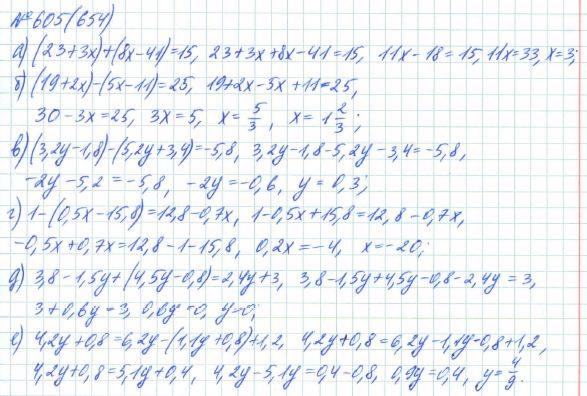 №605(654)
а) (23+3x)+(8x-41)=15, 23+3x+8x-41=15, 11x-18=15, 11x=33, x=3;
б) (19+2x)-(5x-11)=25, 19+2x-5x+11=25,
30-3x=25, 3x=5, x=5/3, x=1 2/3;
в) (3,2y-1,8)-(5,2y+3,4)=-5,8, 3,2y-1,8-5,2y-3,4=-5,8,
-2y-5,2=-5,8, -2y=-0,6, y=0,3;
г) 1-(0,5x-15,8)=12,8-0,7x, 1-0,5x+15,8=12,8-0,7x,
-0,5x+0,7x=12,8-1-15,8, 0,2x=-4, x=-20;
д) 3,8-1,5y+(4,5y-0,8)=2,4y+3, 3,8-1,5y+4,5y-0,8-2,4y=3,
3+0,6y=3, 0,6y=0, y=0;
е) 4,2y+0,8=6,2y-(1,1y+0,8)+1,2, 4,2y+0,8=6,2y-1,1y-0,8+1,2,
4,2y+0,8=5,1y+0,4, 4,2y-5,1y=0,4-0,8, 0,9y=0,4, y=4/9.